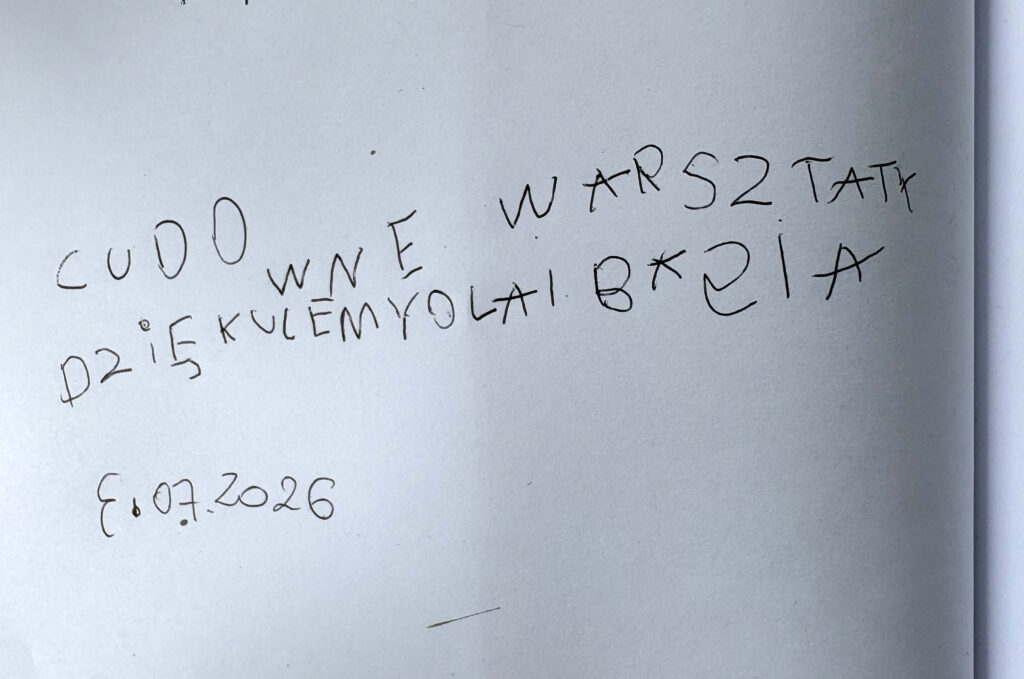 CUDOWNE WARSZTATY
DZIĘKUJEMY OLA I
.07.2026